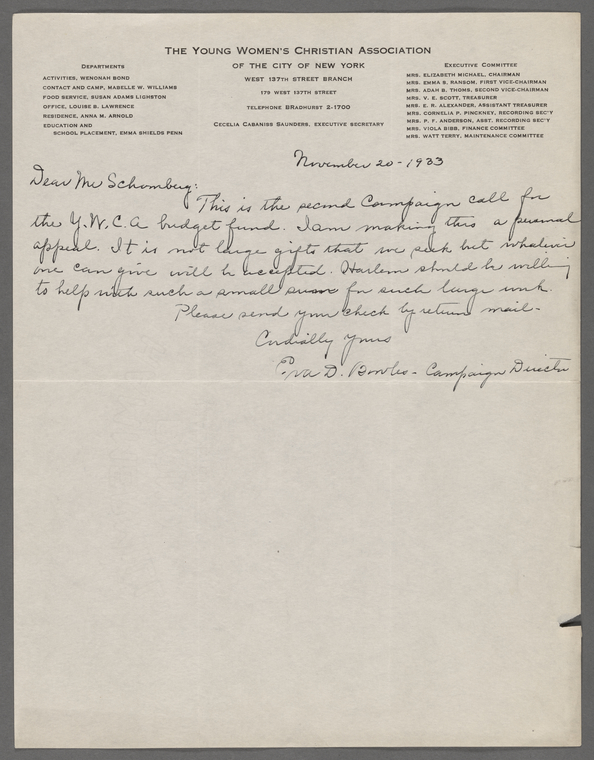 THE YOUNG WOMEN'S CHRISTIAN ASSOCIATION
OF THE CITY OF NEW YORK
WEST 137TH STREET BRANCH
179 WEST 137TH STREET
TELEPHONE BRADHURST 2-1700
CECELIA CABANISS SAUNDERS, EXECUTIVE SECRETARY
DEPARTMENTS
ACTIVITIES, WENONAH BOND
CONTACT AND CAMP, MABELLE W. WILLIAMS
FOOD SERVICE, SUSAN ADAMS LIGHSTON
OFFICE, LOUISE B. LAWRENCE
RESIDENCE, ANNA M. ARNOLD
EDUCATION AND
SCHOOL PLACEMENT, EMMA SHIELDS PENN
EXECUTIVE COMMITTEE
MRS. ELIZABETH MICHAEL, CHAIRMAN
MRS. EMMA S. RANSOM, FIRST VICE-CHAIRMAN
MRS. ADAH B. THOMS, SECOND VICE-CHAIRMAN
MRS. V. E. SCOTT, TREASURER
MRS. E. R. ALEXANDER, ASSISTANT TREASURER
MRS. CORNELIA P. PINCKNEY, RECORDING SEC'Y
MRS. P. F. ANDERSON, ASST. RECORDING SEC'Y
MRS. VIOLA BIBB, FINANCE COMMITTEE
MRS. WATT TERRY, MAINTENANCE COMMITTEE
November 20-1933
Dear Mr Schomberg:
This is the second Campaign call for
the Y.W.C.A budget fund. I am making this a personal
appeal. It is not large gifts that we seek but whatever
one can give will be accepted. Harlem should be willing
to help with such a small sum for such large work.
Please send your check by return mail-
Cordially yours
Eva D. Bowles - Campaign Director